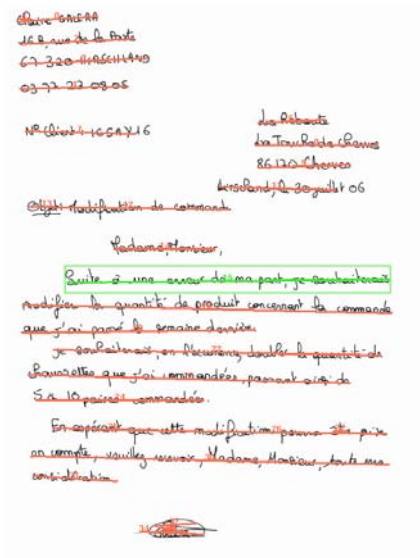 Claire GALERA
16 B rue de la Poste
67 320 HIRSCHLAND
03 77 27 08 05
N° Client : 16SAX16
La Redoute
La Touche de Cherves
86170 Cherves
Hirschland, le 30 juillet 06
Objet : Modification de commande
Madame, Monsieur,
Suite à une erreur de ma part, je souhaiterais
modifier la quantité de produit concernant la commande
que j'ai passé la semaine dernière.
je souhaiterais, en l'occurence, doubler la quantité de
chaussettes que j'ai commandées, passant ainsi de
5 à 10 paires commandées.
En espérant que cette modification pourra être prise
en compte, veuillez recevoir, Madame, Monsieur, toute ma
considération.